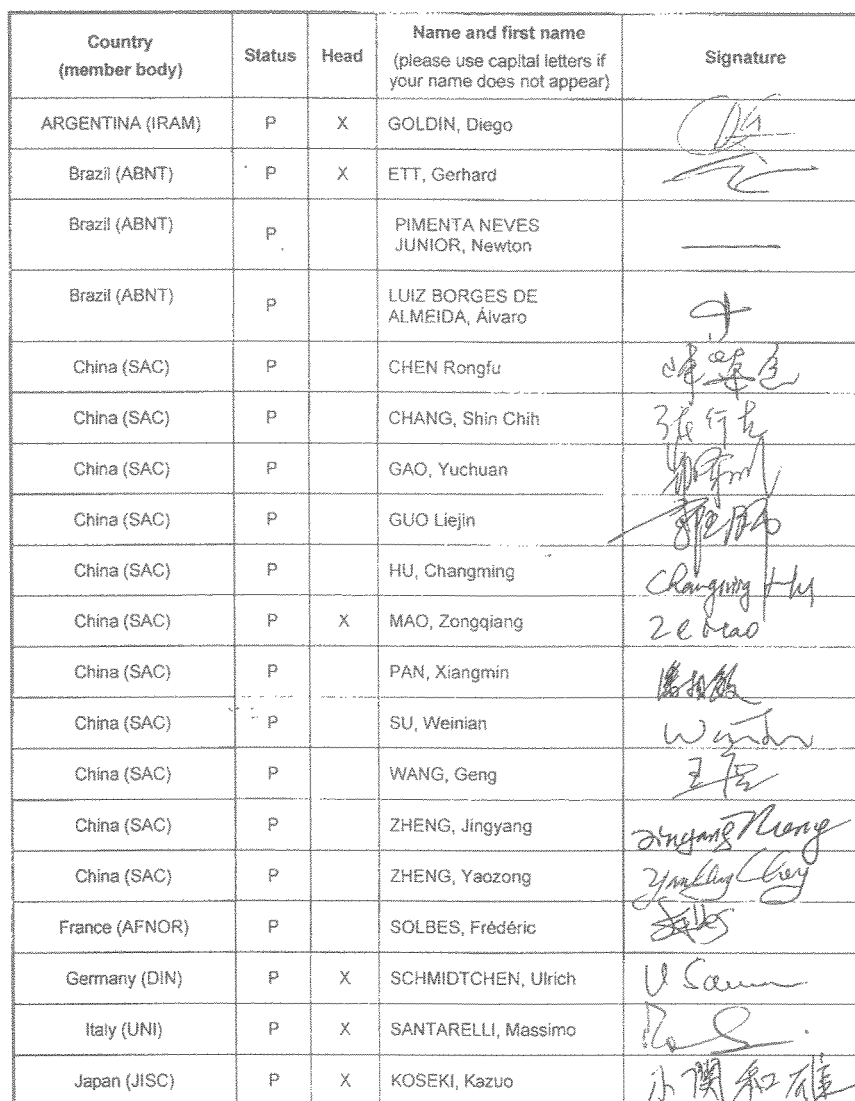 Country
(member body)
Status
Head
Name and first name
(please use capital letters if
your name does not appear)
Signature
ARGENTINA (IRAM) P X GOLDIN, Diego
Brazil (ABNT) P X ETT, Gerhard
Brazil (ABNT) P PIMENTA NEVES
JUNIOR, Newton
Brazil (ABNT) P LUIZ BORGES DE
ALMEIDA, Álvaro
China (SAC) P CHEN Rongfu
China (SAC) P CHANG, Shin Chih
China (SAC) P GAO, Yuchuan
China (SAC) P GUO Liejin
China (SAC) P HU, Changming Changming Hu
China (SAC) P X MAO, Zongqiang
China (SAC) P PAN, Xiangmin
China (SAC) P SU, Weinian
China (SAC) P WANG, Geng
China (SAC) P ZHENG, Jingyang
China (SAC) P ZHENG, Yaozong
France (AFNOR) P SOLBES, Frédéric
Germany (DIN) P X SCHMIDTCHEN, Ulrich
Italy (UNI) P X SANTARELLI, Massimo
Japan (JISC) P X KOSEKI, Kazuo 小関和雄